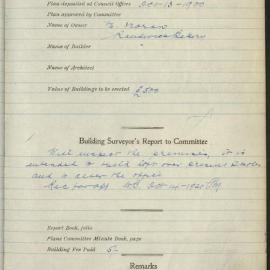 Plan deposited at Council Offices Oct 13 - 1920
Plan approved by Committee
Name of Owner
Name of Builder
Name of Architect
Value of Buildings to be erected £500
Building Surveyor's Report to Committee
Will inspect the premises, it is
intended to build loft over present stables
and a
Rec for app Oct 14 - 1920
Report Book, folio
Plans Committee Minute Book, page
Building Fee Paid 5/-
Remarks